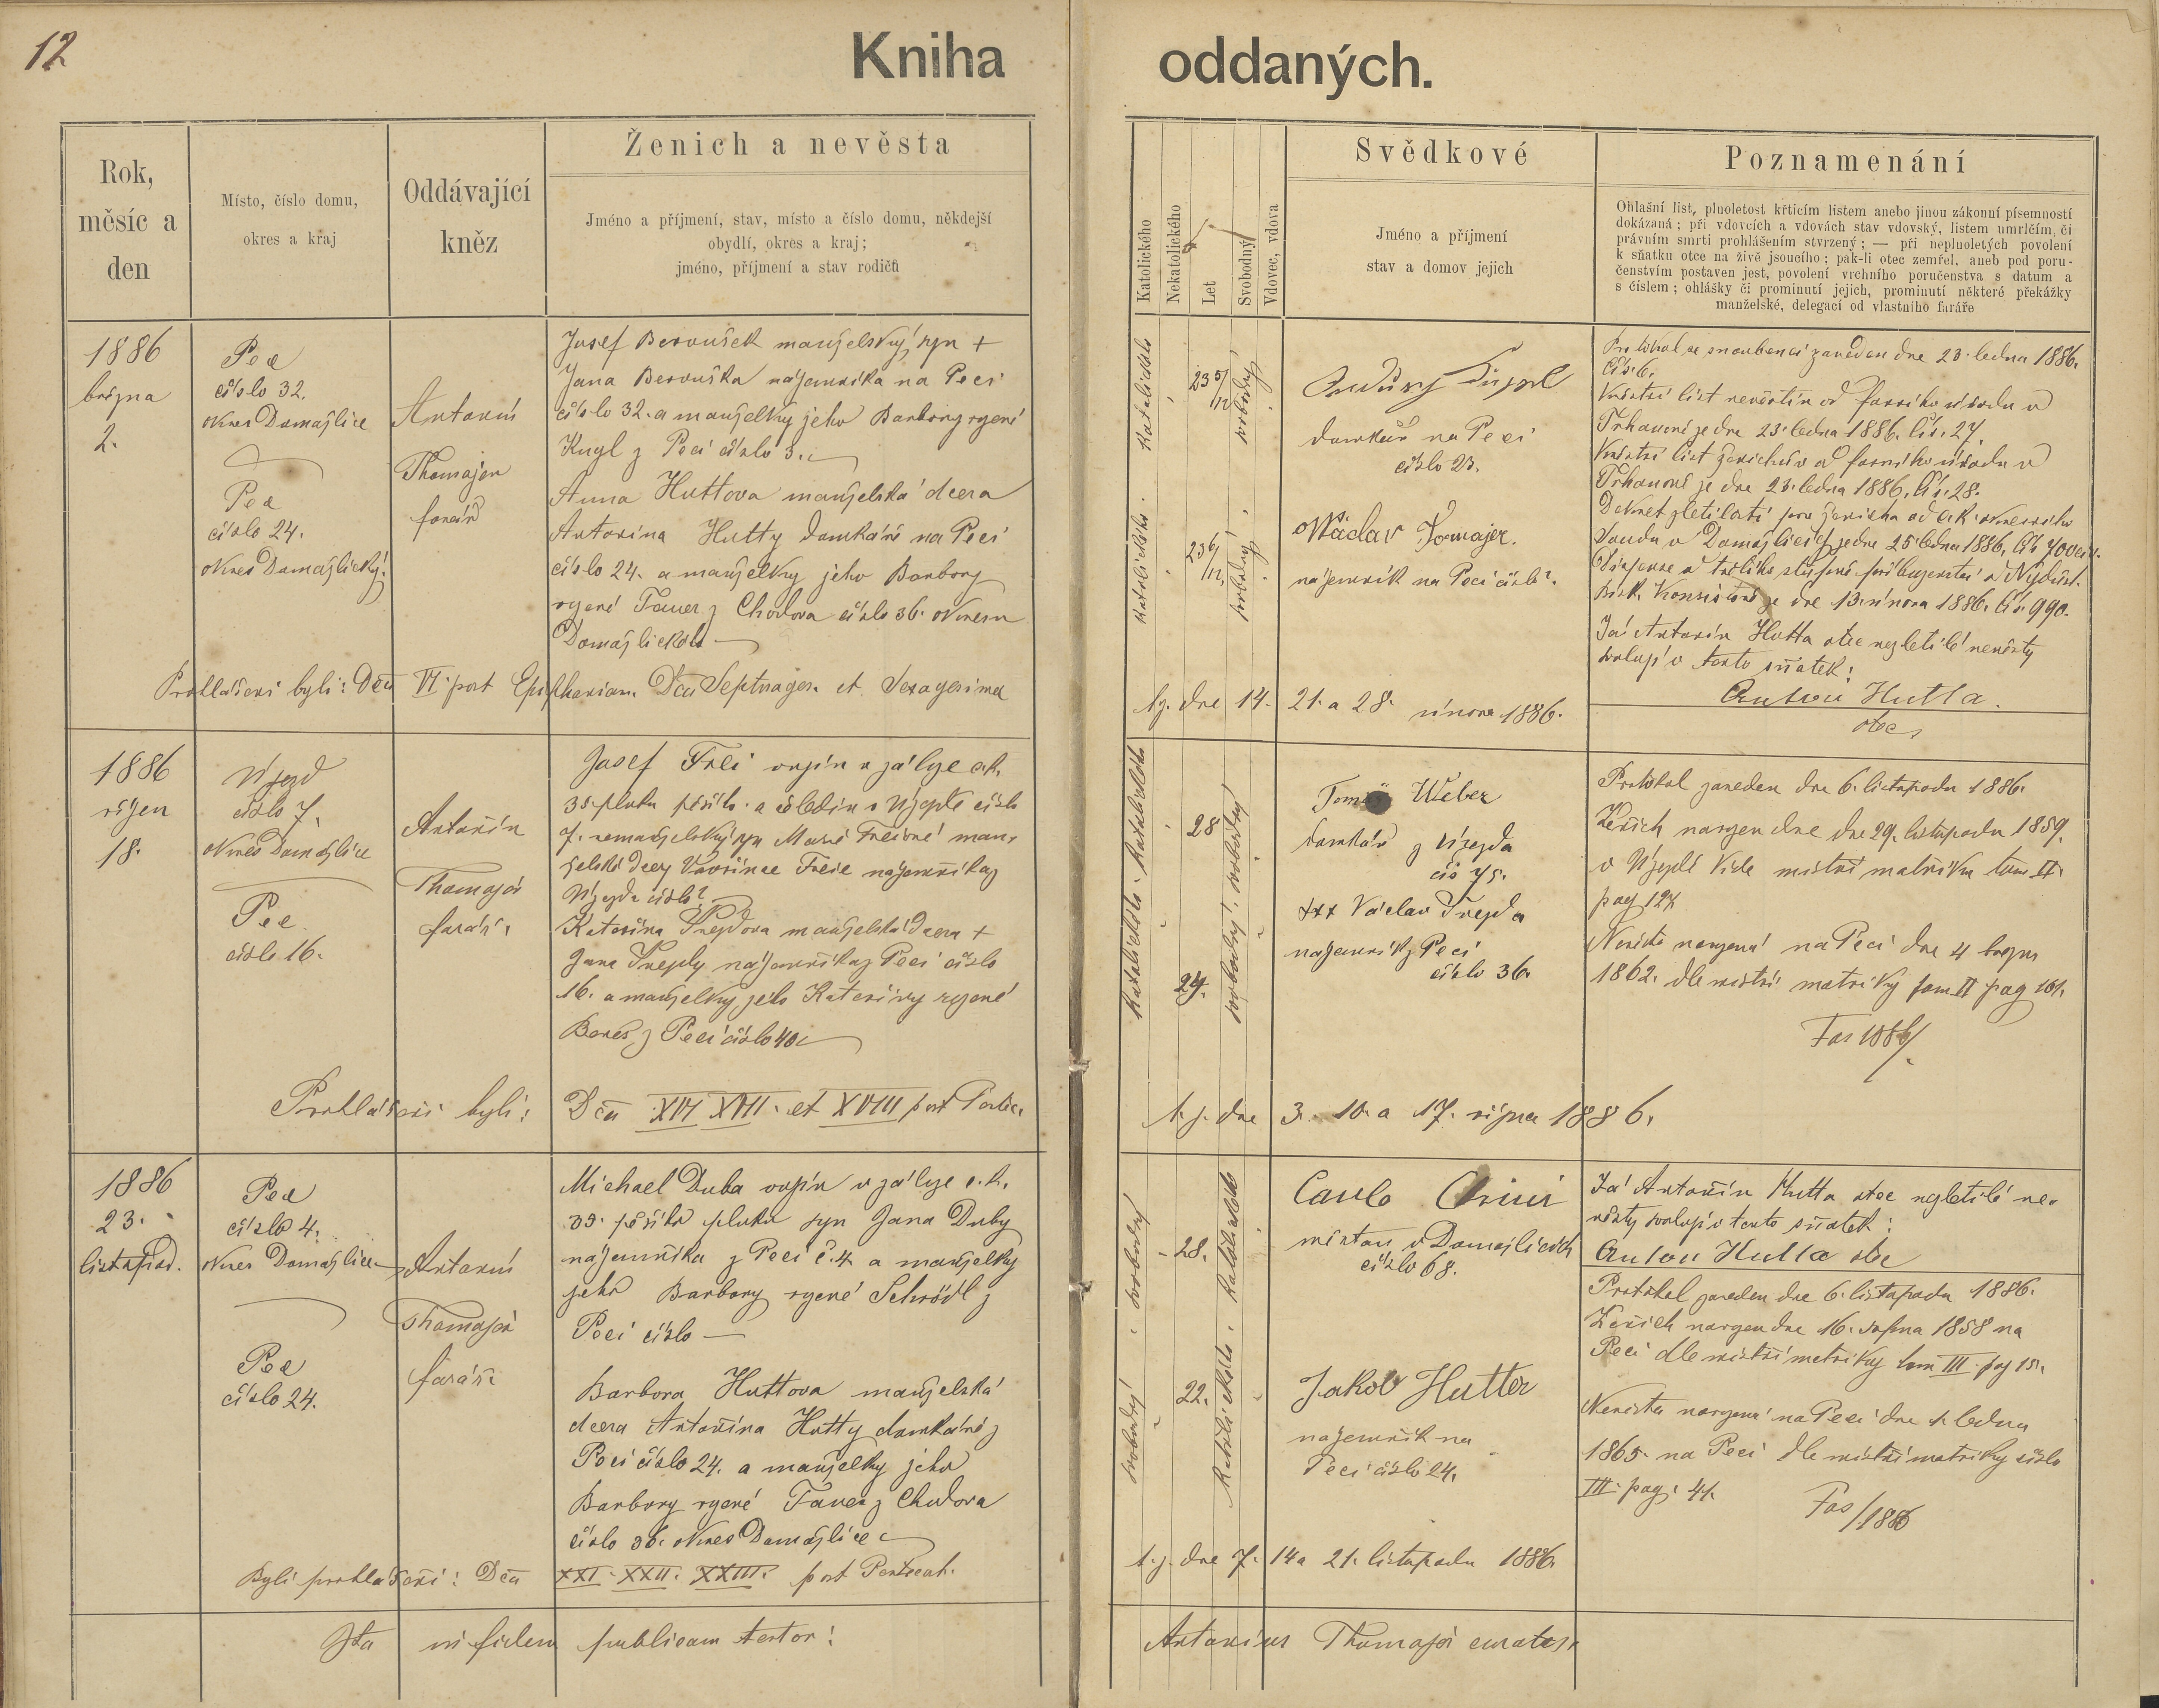 12
Kniha oddaných.
Rok,
měsíc a
den
Místo, číslo domu,
okres a kraj
Oddávající
kněz
Ženich a nevěsta
Jméno a příjmení, stav, místo a číslo domu, někdejší
obydlí, okres a kraj;
jméno, příjmení a stav rodičů
Katolického
Nekatolického
Let
Svobodný
Vdovec, vdova
Svědkové
Jméno a příjmení
stav a domov jejich
Poznamenání
Ohlašní list, plnoletost křticím listem anebo jinou zákonní písemností
dokázaná; při vdovcích a vdovách stav vdovský, listem umrlčím, či
právním smrti prohlášením stvrzený; — při neplnoletých povolení
k sňatku otce na živě jsoucího; pak-li otec zemřel, aneb pod poru-
čenstvím postaven jest, povolení vrchního poručenstva s datum a
s číslem; ohlášky či prominutí jejich, prominutí některé překážky
manželské, delegací od vlastního faráře
1886
března
2.
Pec
číslo 32.
okres Domažlice
Pec
číslo 24.
okres Domažlický.
Antonín
Thomajer
farář
Josef Beroušek manželský syn +
Jana Berouška nájemníka na Peci
číslo 32. a manželky jeho Barbory rozené
Kugl z Peci číslo 3.
Anna Huttova manželská dcera
Antonína Hutty domkáře na Peci
číslo 24. a manželky jeho Barbory
rozené Tauer z Chodova číslo 36. okresu
Domažlického
katolického
katolického
23 5/12
23 6/12
svobodný
svobodný
domkář na Peci
číslo 23.
Wáclav Tomajer.
nájemník na Peci číslo?
Protokol se snoubenci zaveden dne 23. ledna 1886.
Čís. 6.
Křestní list nevěstin od farního úřadu v
Trhanově je dne 23. ledna 1886. Čís. 27.
Křestní list ženichův od farního úřadu v
Trhanově je dne 23. ledna 1886. Čís. 28.
Dekret zletilosti pro ženicha od c.k. okresního
Soudu v Domažlicích je dne 25. ledna 1886.
Konsistoře je dne 13. února 1886. Čís. 990.
Já Antonín Hutta otec nezletilé nevěsty
svoluji v tento sňatek:
Anton Hutta.
otec
Prohlášeni byli: Dca VI. post Epiphaniam. Dca Septuages. et Sexagesima
t.j. dne 14. 21. a 28. února 1886.
1886
říjen
18.
Újezd
číslo 7.
okres Domažlice
Pec
číslo 16.
Antonín
Thomajer
farář.
Josef Frei vojín v záloze c.k.
35. pluku pěšího a čeledín v Újezdě číslo
7. nemanželský syn Marie Freiové man-
želské dcery Vavřince Freie nájemníka z
Újezda číslo?
Kateřina manželská dcera +
Jana nájemníka z Peci číslo
16. a manželky jeho Kateřiny rozené
Beneš z Peci číslo 40
katolického
katolického
28
24.
svobodný
svobodný
Tomáš Weber
domkář z Újezda
čís 75.
+++ Václav
nájemník z Peci
číslo 36.
Protokol zaveden dne 6. listopadu 1886.
Ženich narozen dne 29. listopadu 1859.
v Újezdě vide místní matriku tom II.
pag 127
Nevěsta narozená na Peci dne 4 března
1862. dle místní matriky tom II pag 101.
Fas 1886/
Prohlášeni byli: Dca XVI XVII. et XVIII post Pentec.
t.j. dne 3. 10. a 17. října 1886.
1886
23.
listopad.
Pec
číslo 4.
okres Domažlice
Pec
číslo 24.
Antonín
Thomajer
farář.
Michael Duba vojín v záloze c.k.
35. pěšího pluku syn Jana Duby
nájemníka z Peci č. 4. a manželky
jeho Barbory rozené Schrödl z
Peci číslo —
Barbora Huttova manželská
dcera Antonína Hutty domkáře z
Peci číslo 24. a manželky jeho
Barbory rozené Tauer z Chodova
číslo 36. okres Domažlice
svobodný
svobodný
28.
22.
katolického
katolického
v Domažlicích
číslo 68.
Jakob Hutter
nájemník na
Peci číslo 24.
Já Antonín Hutta otec nezletilé ne-
věsty svoluji v tento sňatek:
Anton Hutta otec
Protokol zaveden dne 6. listopadu 1886.
Ženich narozen dne 16. srpna 1858 na
Peci dle místní matriky tom III. pag 15.
Nevěsta narozená na Peci dne 1. ledna
1865. na Peci dle místní matriky číslo
III. pag. 41.
Fas/1886
Byli prohlášeni: Dca XXI. XXII. XXIII. post Pentecost.
t.j. dne 7. 14 a 21. listopadu 1886.
Ita in fidem publicam testor:
Antonius Thomajer curatus.